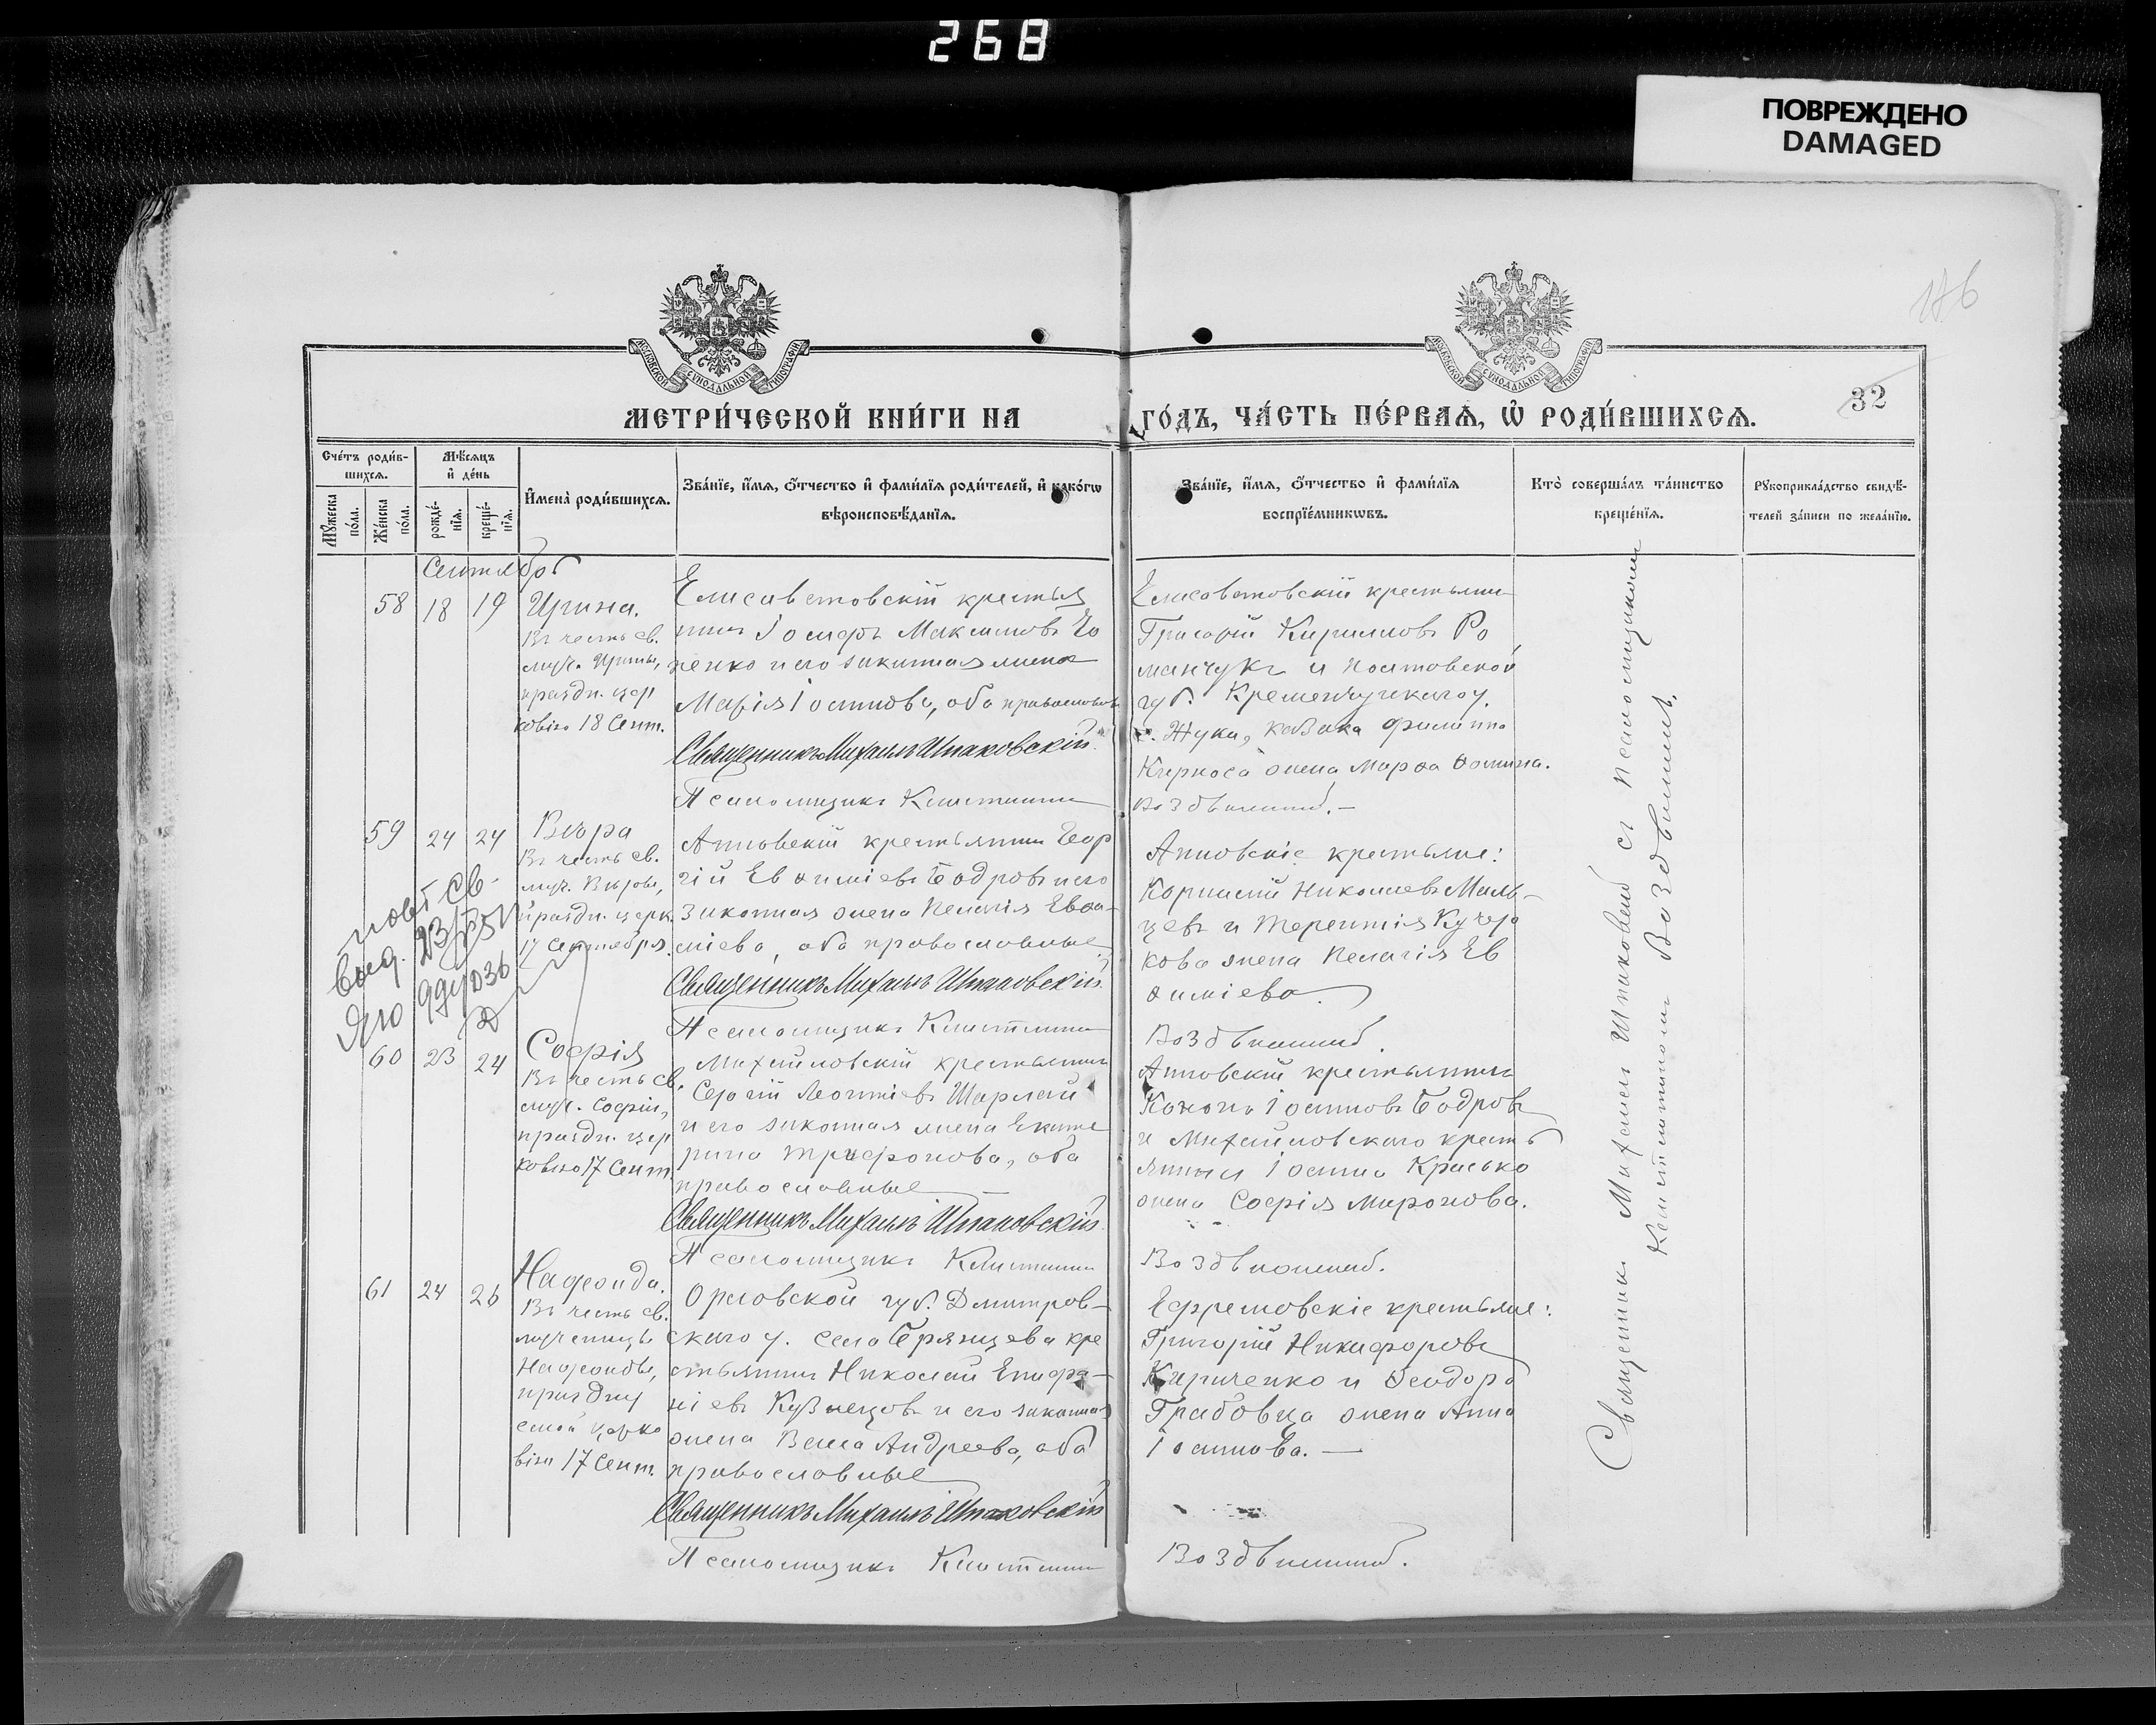 268
ПОВРЕЖДЕНО
DAMAGED
МОСКОВСКОЙ СѴНОДАЛЬНОЙ ТИПОГРАФІИ
МОСКОВСКОЙ СѴНОДАЛЬНОЙ ТИПОГРАФІИ
32
МЕТРИ́ЧЕСКОЙ КНИ́ГИ НА ГО́ДЪ, ЧА́СТЬ ПЕ́РВАѦ, Ѡ҆ РОДИ́ВШИХСѦ.
Сче́тъ роди́в-
шихсѧ.
Мꙋ́жеска
по́ла.
Же́нска
пола.
Мѣ́сѧцъ
и҆ де́нь
рожде́-
нїѧ.
креще́-
нїѧ.
И҆мена̀ роди́вшихсѧ.
Зва́нїе, и҆́мѧ, ѻ҆́тчество и҆ фами́лїѧ роди́телей, и҆ како́гѡ
вѣроисповѣ́данїѧ.
Зва́нїе, и҆́мѧ, ѻ҆́тчество и҆ фами́лїѧ
воспрїе́мникѡвъ.
Кто̀ соверша́лъ та́инство
креще́нїѧ.
Рꙋкоприкла́дство свидѣ́-
телей за́писи по жела́нїю.
Сентябрь
58 18 19
Ирина.
Въ честь св.
муч. Ирины,
праздн. цер
ковію 18 Сент.
Елисаветовскій крестья
нинъ Іосифъ Максимовъ
и его законная жена
Марія Іоаннова, оба православн
Священникъ Михаилъ Шпаковскій.
Псаломщикъ Константинъ
Елисаветовскій крестьянин
Григорій Кириловъ Ро
манчукъ и Полтавской
губ. Кременчугскаго у.
с. Жуки, козака Филиппа
жена Марѳа Ѳомина.
Воздвиженскій.
59 24 24
Вѣра
Въ честь св.
муч. Вѣры,
праздн. церк.
17 Сентября.
Анновскій крестьянин Геор
гій Евѳиміевъ Бодровъ и его
законная жена Пелагія Евѳи-
міева, оба православные
Священникъ Михаилъ Шпаковскій.
Псаломщикъ Константинъ
Анновскіе крестьяне:
Корнилій Николаевъ Маль-
цевъ и Терентія Кучеро
кова жена Пелагія Ев
ѳиміева.
Воздвиженскій.
60 23 24
Софія
Въ честь св.
муч. Софіи,
праздн. цер
ковію 17 Сент.
Михайловскій крестьянинъ
Сергій Леонтіевъ Шарлай
и его законная жена Екате
рина Трифонова, оба
православные
Священникъ Михаилъ Шпаковскій.
Псаломщикъ Константинъ
Анновскій крестьянинъ
Кононъ Іоанновъ Бодровъ
и Михайловскаго кресть
янина Іоанна Красько
жена Софія Миронова.
Воздвиженскій.
61 24 26
Надежда.
Въ честь св.
мученицы
Надежды,
праздну
емой церко
вію 17 Сент.
Орловской губ. Дмитров-
скаго у. села Брянцева кре
стьянинъ Николай Епифа-
ніевъ Кузнецовъ и его законная
жена Васса Андреева, оба
православные
Священникъ Михаилъ Шпаковскій
Псаломщикъ Константинъ
Ефремовскіе крестьяне:
Григорій Никифоровъ
Кириченко и Ѳеодора
Грабовца жена Анна
Іоаннова.
Воздвиженскій.
Священникъ Михаилъ Шпаковскій съ псаломщикомъ
Константиномъ Воздвиженск.